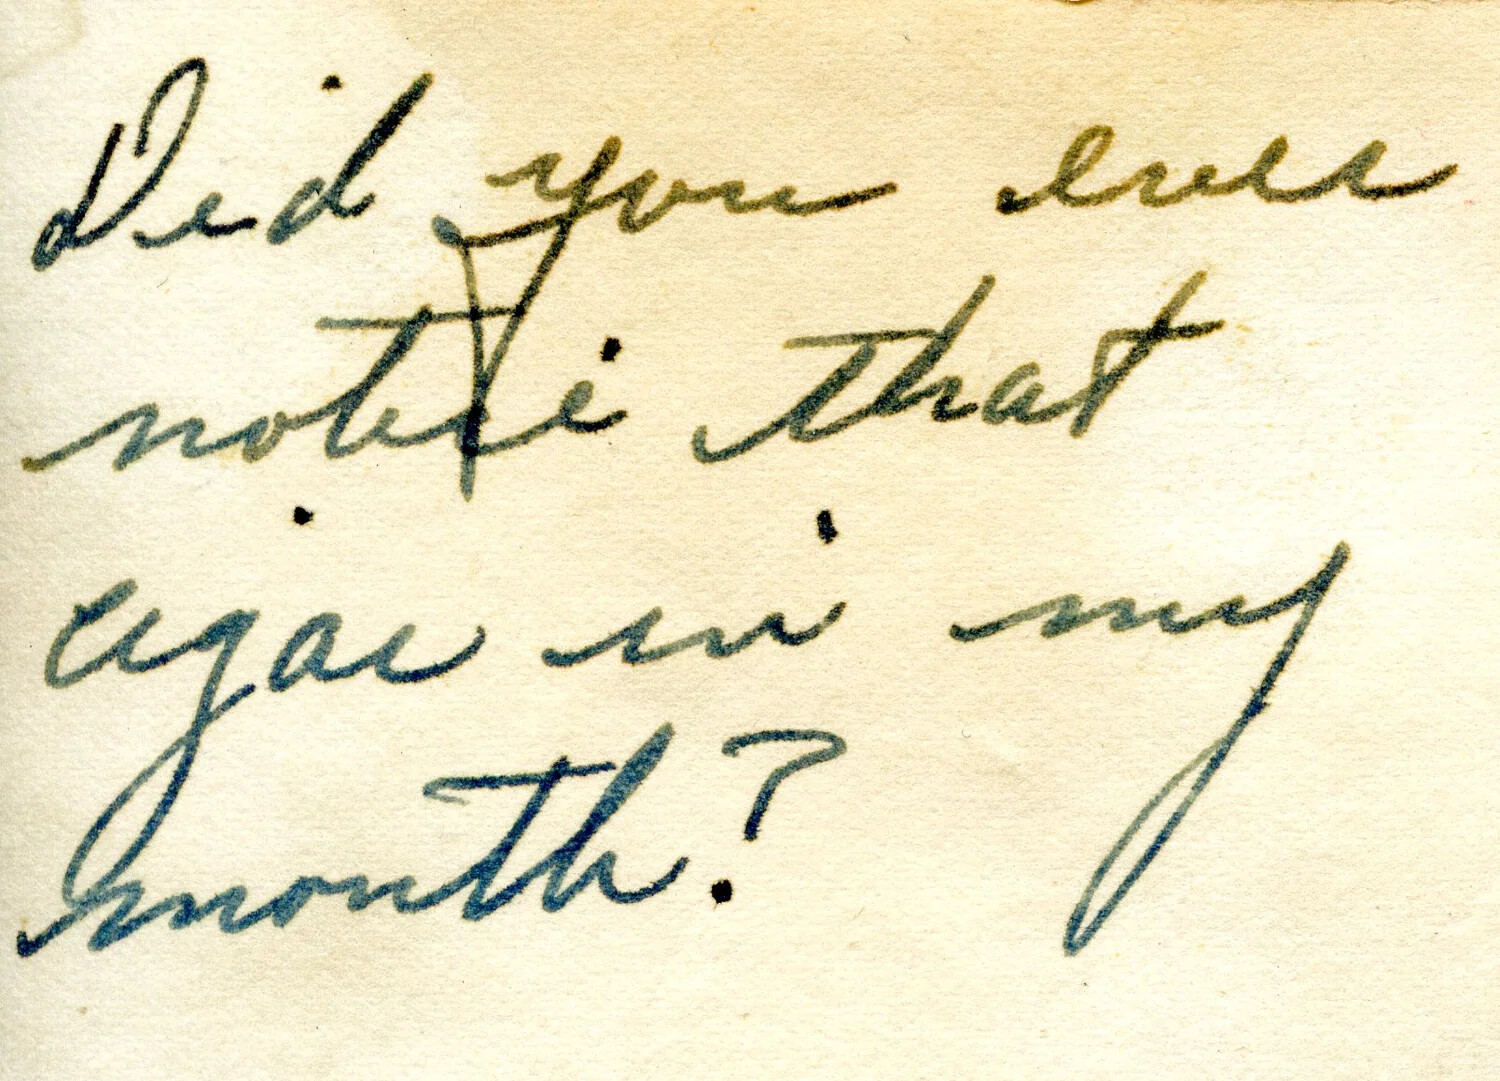 Did you ever
notice that
cigar in my
mouth?